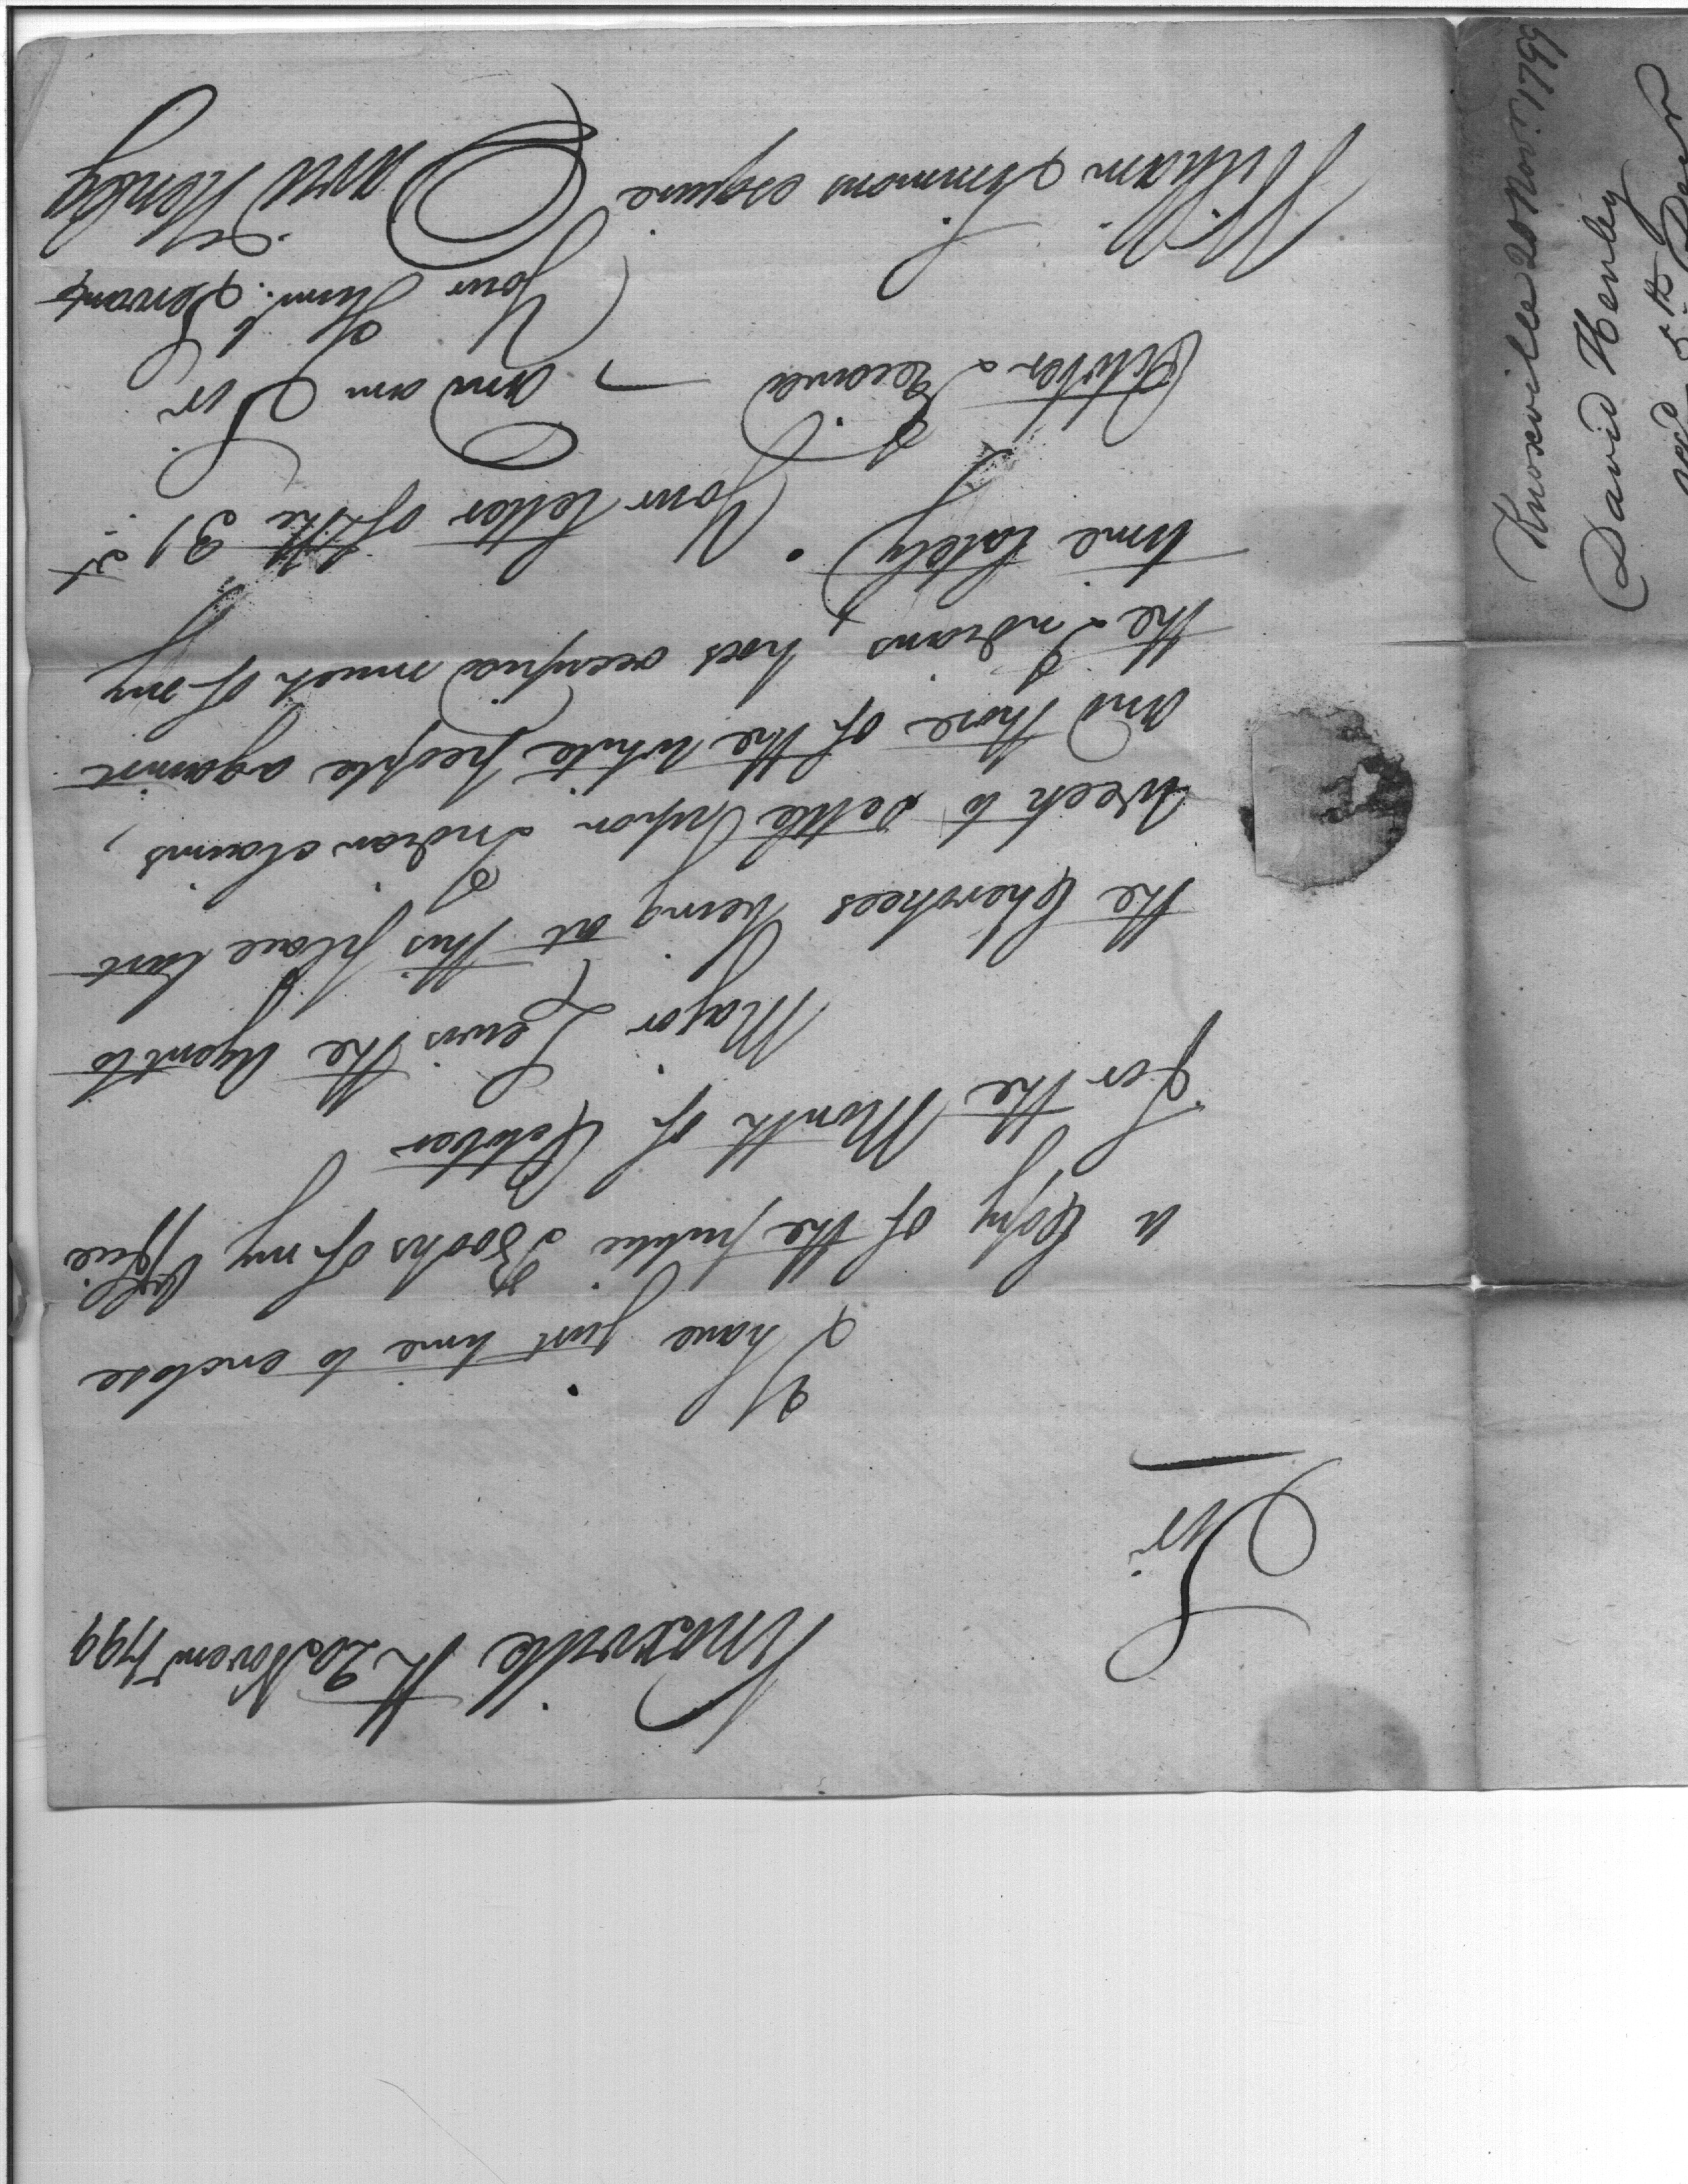 Knoxville th 20 Novemr 1799
Sir
I have just time to enclose
a Copy of the public Books of my Office
for the Month of October
Major Lewis the Agent to
the Cherokees being at this place last
week to settle Upon Indian claims,
and those of the white people against
the Indians, has occupied much of my
time lately. Your letter of the 31st
October I received and am Sir
Your Huml. Servant
William Simmons esquire David Henley
Knoxville 20 Novr. 1799
David Henley
recd 5th Decr